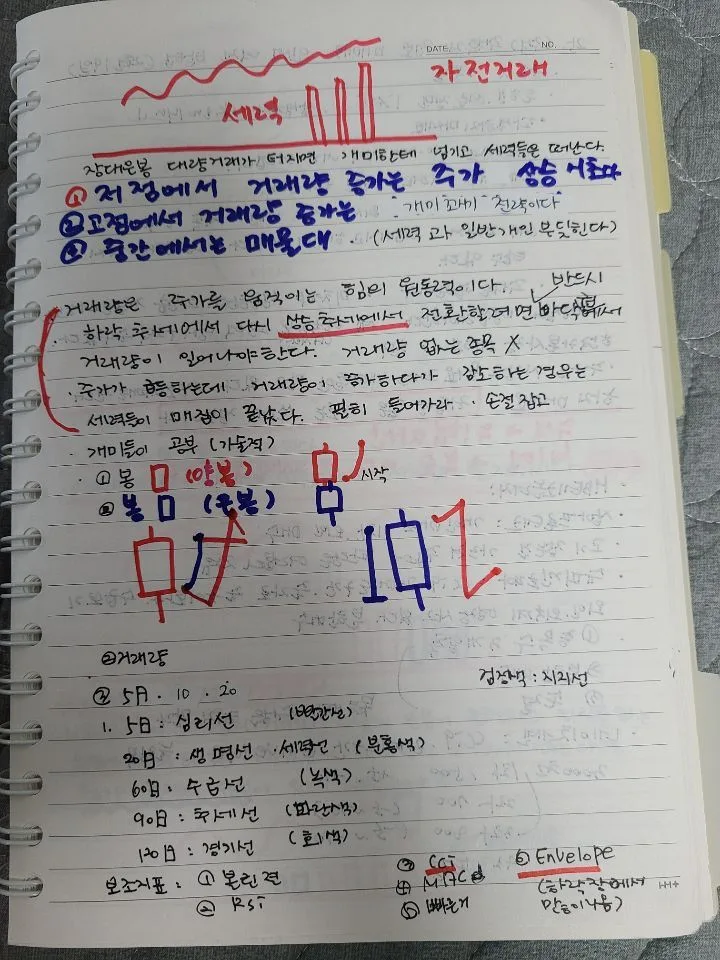 DATE. NO.
자전거래
세력
장대은봉 대량거래가 터지면 개미한테 넘기고 세력들은 떠난다.
① 저점에서 거래량 증가는 주가 상승
② 고점에서 거래량 증가는 "개미 꼬시기" 전략이다
③ 중간에서는 매물대. (세력과 일반개인 부딪힌다)
거래량은 주가를 움직이는 힘의 원동력이다. 반드시
하락 추세에서 다시 상승추세에서 전환할려면 바닥
거래량이 일어나야한다. 거래량 없는 종목 X
· 주가가 하는데 거래량이 증가하다가 감소하는 경우는
세력들이 매집이 끝났다. 필히 들어가라. 손절잡고
· 개미들이 공부 (기술적)
· ① 봉 (양봉) 시작
② 봉 (은봉)
②거래량
③ 5日 · 10 · 20 검정색 : 지지선
1. 5日 : 심리선 (빨간선)
20日 : 생명선 · 세력선 (분홍색)
60日 : 수급선 (녹색)
90日 : 추세선 (파란색)
120日 : 경기선 (회색)
보조지표 : ① 볼린젼 ③ CCI ⑥ Envelope
② RSI ④ MACD (하락장에서
⑤ 많이 사용)